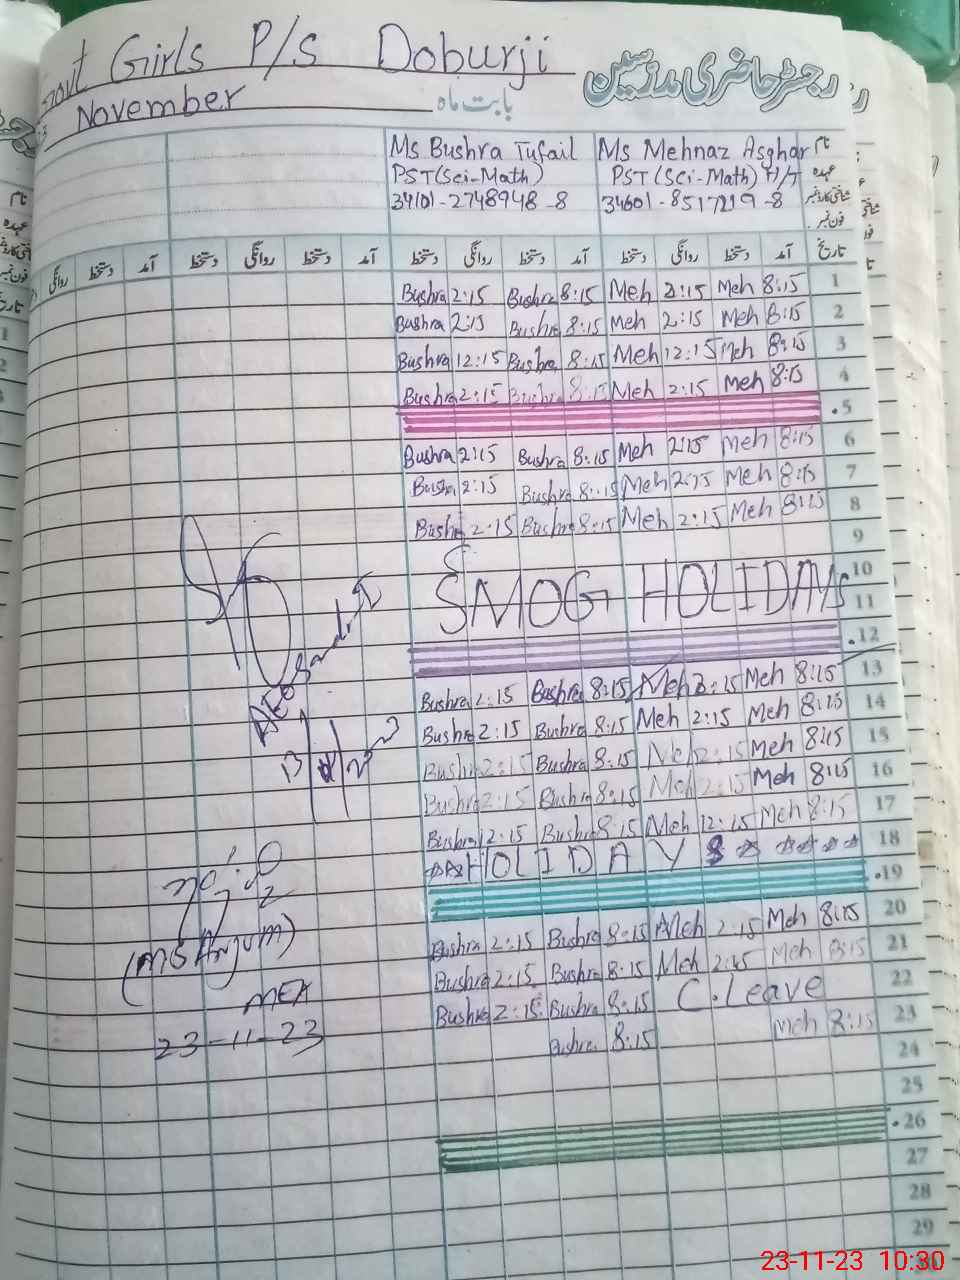 Govt Girls P/S Doburji
رجسٹر حاضری مدرسین
November بابت ماہ
Ms Bushra Tufail Ms Mehnaz Asghar نام
PST (Sci-Math) PST (Sci-Math) H/T عہدہ
34101-2748948-8 34601-8517219-8 شناختی کارڈ نمبر
فون نمبر
روانگی دستخط آمد دستخط روانگی دستخط آمد دستخط روانگی دستخط آمد دستخط روانگی دستخط آمد تاریخ
Bushra 2:15 Bushra 8:15 Meh 2:15 Meh 8:15 1
Bushra 2:15 Bushra 8:15 Meh 2:15 Meh 8:15 2
Bushra 12:15 Bushra 8:15 Meh 12:15 Meh 8:15 3
Bushra 2:15 Bushra 8:15 Meh 2:15 Meh 8:15 4
.5
Bushra 2:15 Bushra 8:15 Meh 2:15 Meh 8:15 6
Bushra 2:15 Bushra 8:15 Meh 2:15 Meh 8:15 7
Bushra 2:15 Bushra 8:15 Meh 2:15 Meh 8:15 8
9
10
SMOG HOLIDAYS 11
.12
Bushra 2:15 Bushra 8:15 Meh 2:15 Meh 8:15 13
Bushra 2:15 Bushra 8:15 Meh 2:15 Meh 8:15 14
Bushra 2:15 Bushra 8:15 Meh 2:15 Meh 8:15 15
Bushra 2:15 Bushra 8:15 Meh 2:15 Meh 8:15 16
Bushra 12:15 Bushra 8:15 Meh 12:15 Meh 8:15 17
HOLIDAY 18
.19
Bushra 2:15 Bushra 8:15 Meh 2:15 Meh 8:15 20
Bushra 2:15 Bushra 8:15 Meh 2:15 Meh 8:15 21
Bushra 2:15 Bushra 8:15 C.Leave 22
Bushra 8:15 Meh 8:15 23
24
25
.26
27
28
29
(Ms Anjum)
MEA
23-11-23
23-11-23 10:30